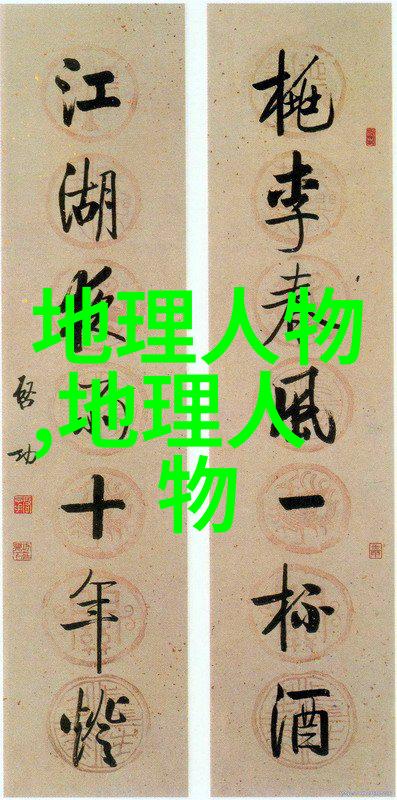 桃李春风一杯酒
江湖夜雨十年灯
启功
地理人物
,地理人
物